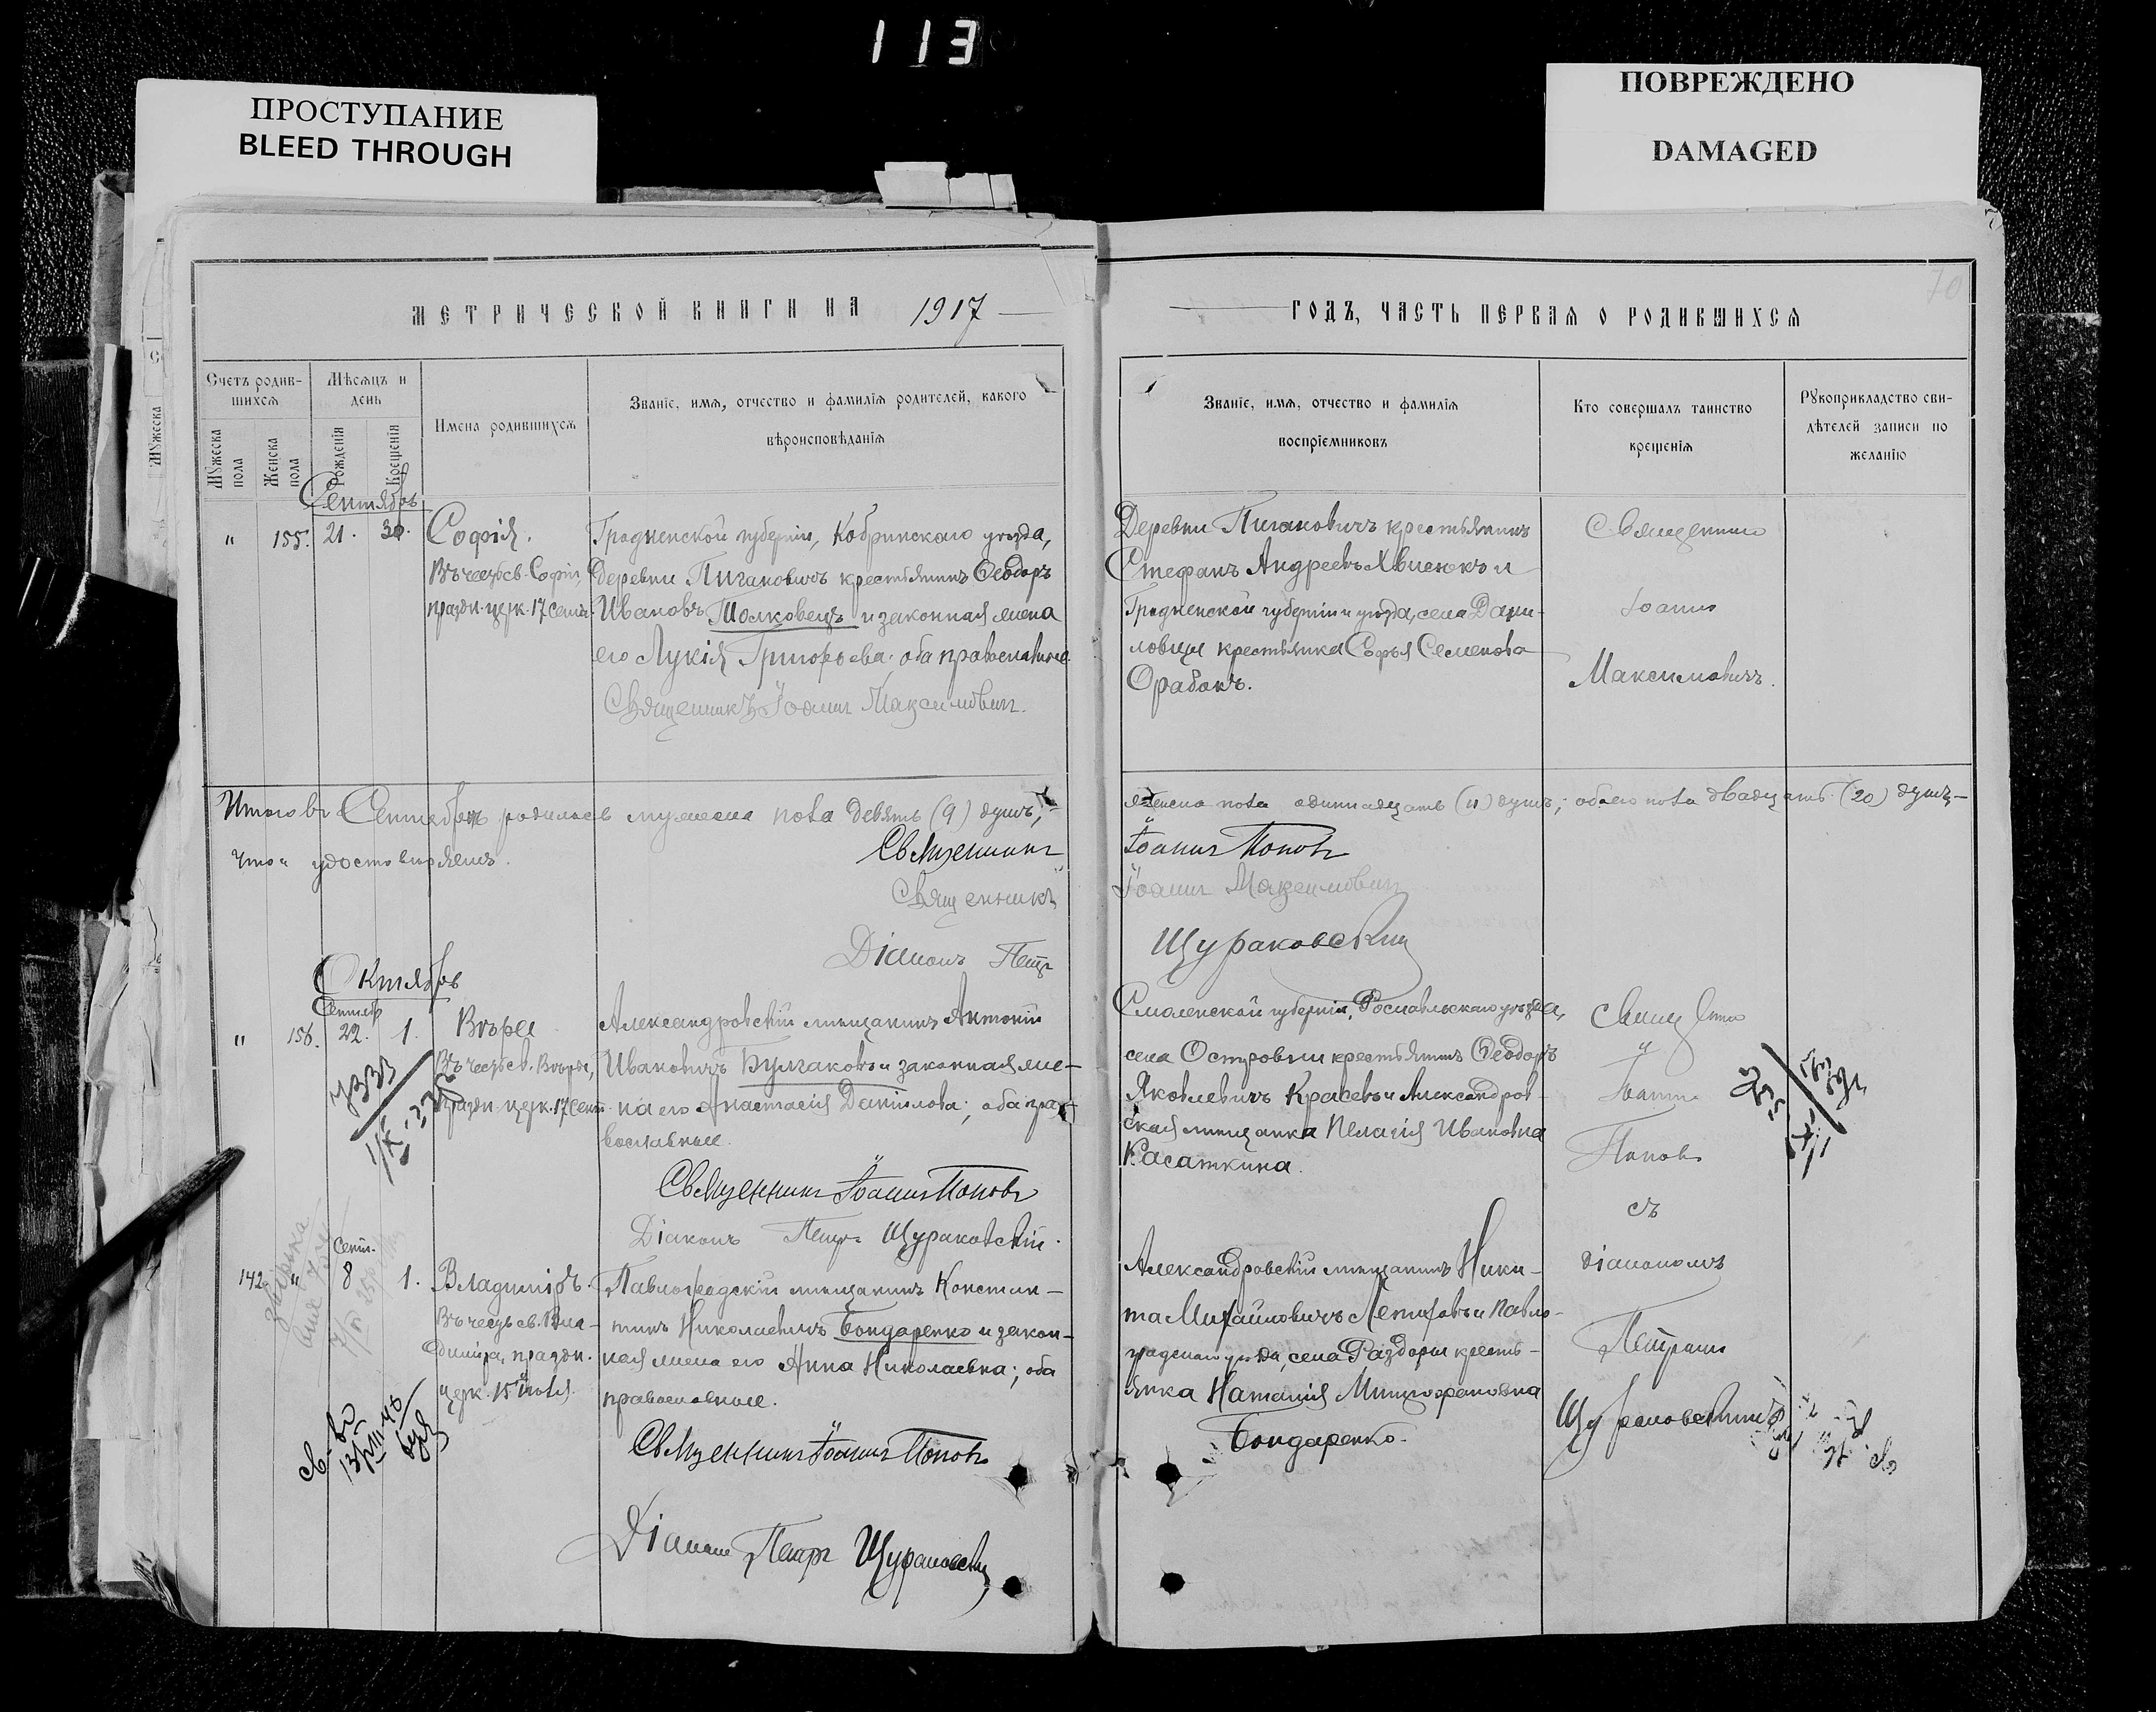 113
ПРОСТУПАНИЕ
BLEED THROUGH
ПОВРЕЖДЕНО
DAMAGED
МЕТРИЧЕСКОЙ КНИГИ НА 1917
Счетъ родив-
шихся
Мѣсяцъ и
день
Мужеска
пола
Женска
пола
Рожденія
Крещенія
Имена родившихся
Званіе, имя, отчество и фамилія родителей, какого
вѣроисповѣданія
Сентябрь
" 155. 21. 30. Софія.
Въ честь св. Софіи,
праздн. церк. 17 Сент.
Гродненской губерніи, Кобринскаго уѣзда,
деревни Пигановичъ крестьянинъ Ѳеодоръ
Ивановъ Толковецъ и законная жена
его Лукія Григорьева; оба православные.
Священникъ Іоаннъ Максимовичъ.
Итого въ Сентябрѣ родилось мужеска пола девять (9) душъ,
что и удостовѣряемъ.
Священникъ
Священникъ
Діаконъ Петръ
Октябрь
Сентяб.
" 156. 22. 1. Вѣра
Въ честь св. Вѣры,
праздн. церк. 17 Сент.
Александровскій мѣщанинъ Антоній
Ивановичъ Булгаковъ и законная же-
на его Анастасія Данілова; оба пра-
вославные.
Священникъ Іоаннъ Поповъ
Діаконъ Петръ Щураковскій.
Сент.
142. " 8 1. Владиміръ.
Въ честь св. Вла-
диміра, праздн.
церк. 15 іюля.
Павлоградскій мѣщанинъ Констан-
тинъ Николаевичъ Бондаренко и закон-
ная жена его Анна Николаевна; оба
православные.
Священникъ Іоаннъ Поповъ
Діаконъ Петръ Щураковскій
70
ГОДЪ, ЧАСТЬ ПЕРВАЯ О РОДИВШИХСЯ
Званіе, имя, отчество и фамилія
воспріемниковъ
Кто совершалъ таинство
крещенія
Рукоприкладство сви-
дѣтелей записи по
желанію
Деревни Пигановичъ крестьянинъ
Стефанъ Андреевъ Хвисюкъ и
Гродненской губерніи и уѣзда, села Дани-
ловцы крестьянка Софья Семенова
Орабокъ.
Священникъ
Іоаннъ
Максимовичъ.
женска пола одиннадцать (11) душъ; обоего пола двадцать (20) душъ
Іоаннъ Поповъ
Іоаннъ Максимовичъ
Щураковскій
Смоленской губерніи, Рославльскаго уѣзда,
села Островки крестьянинъ Ѳеодоръ
Яковлевичъ Красевъ и Александров-
ская мѣщанка Пелагія Ивановна
Касаткина.
Священникъ
Іоаннъ
Поповъ
съ
діакономъ
Петромъ
Щураковскимъ
Александровскій мѣщанинъ Ники-
та Михайловичъ Лепиховъ и Павло-
градскаго уѣзда, села Раздоры кресть-
янка Наталія Митрофановна
Бондаренко.